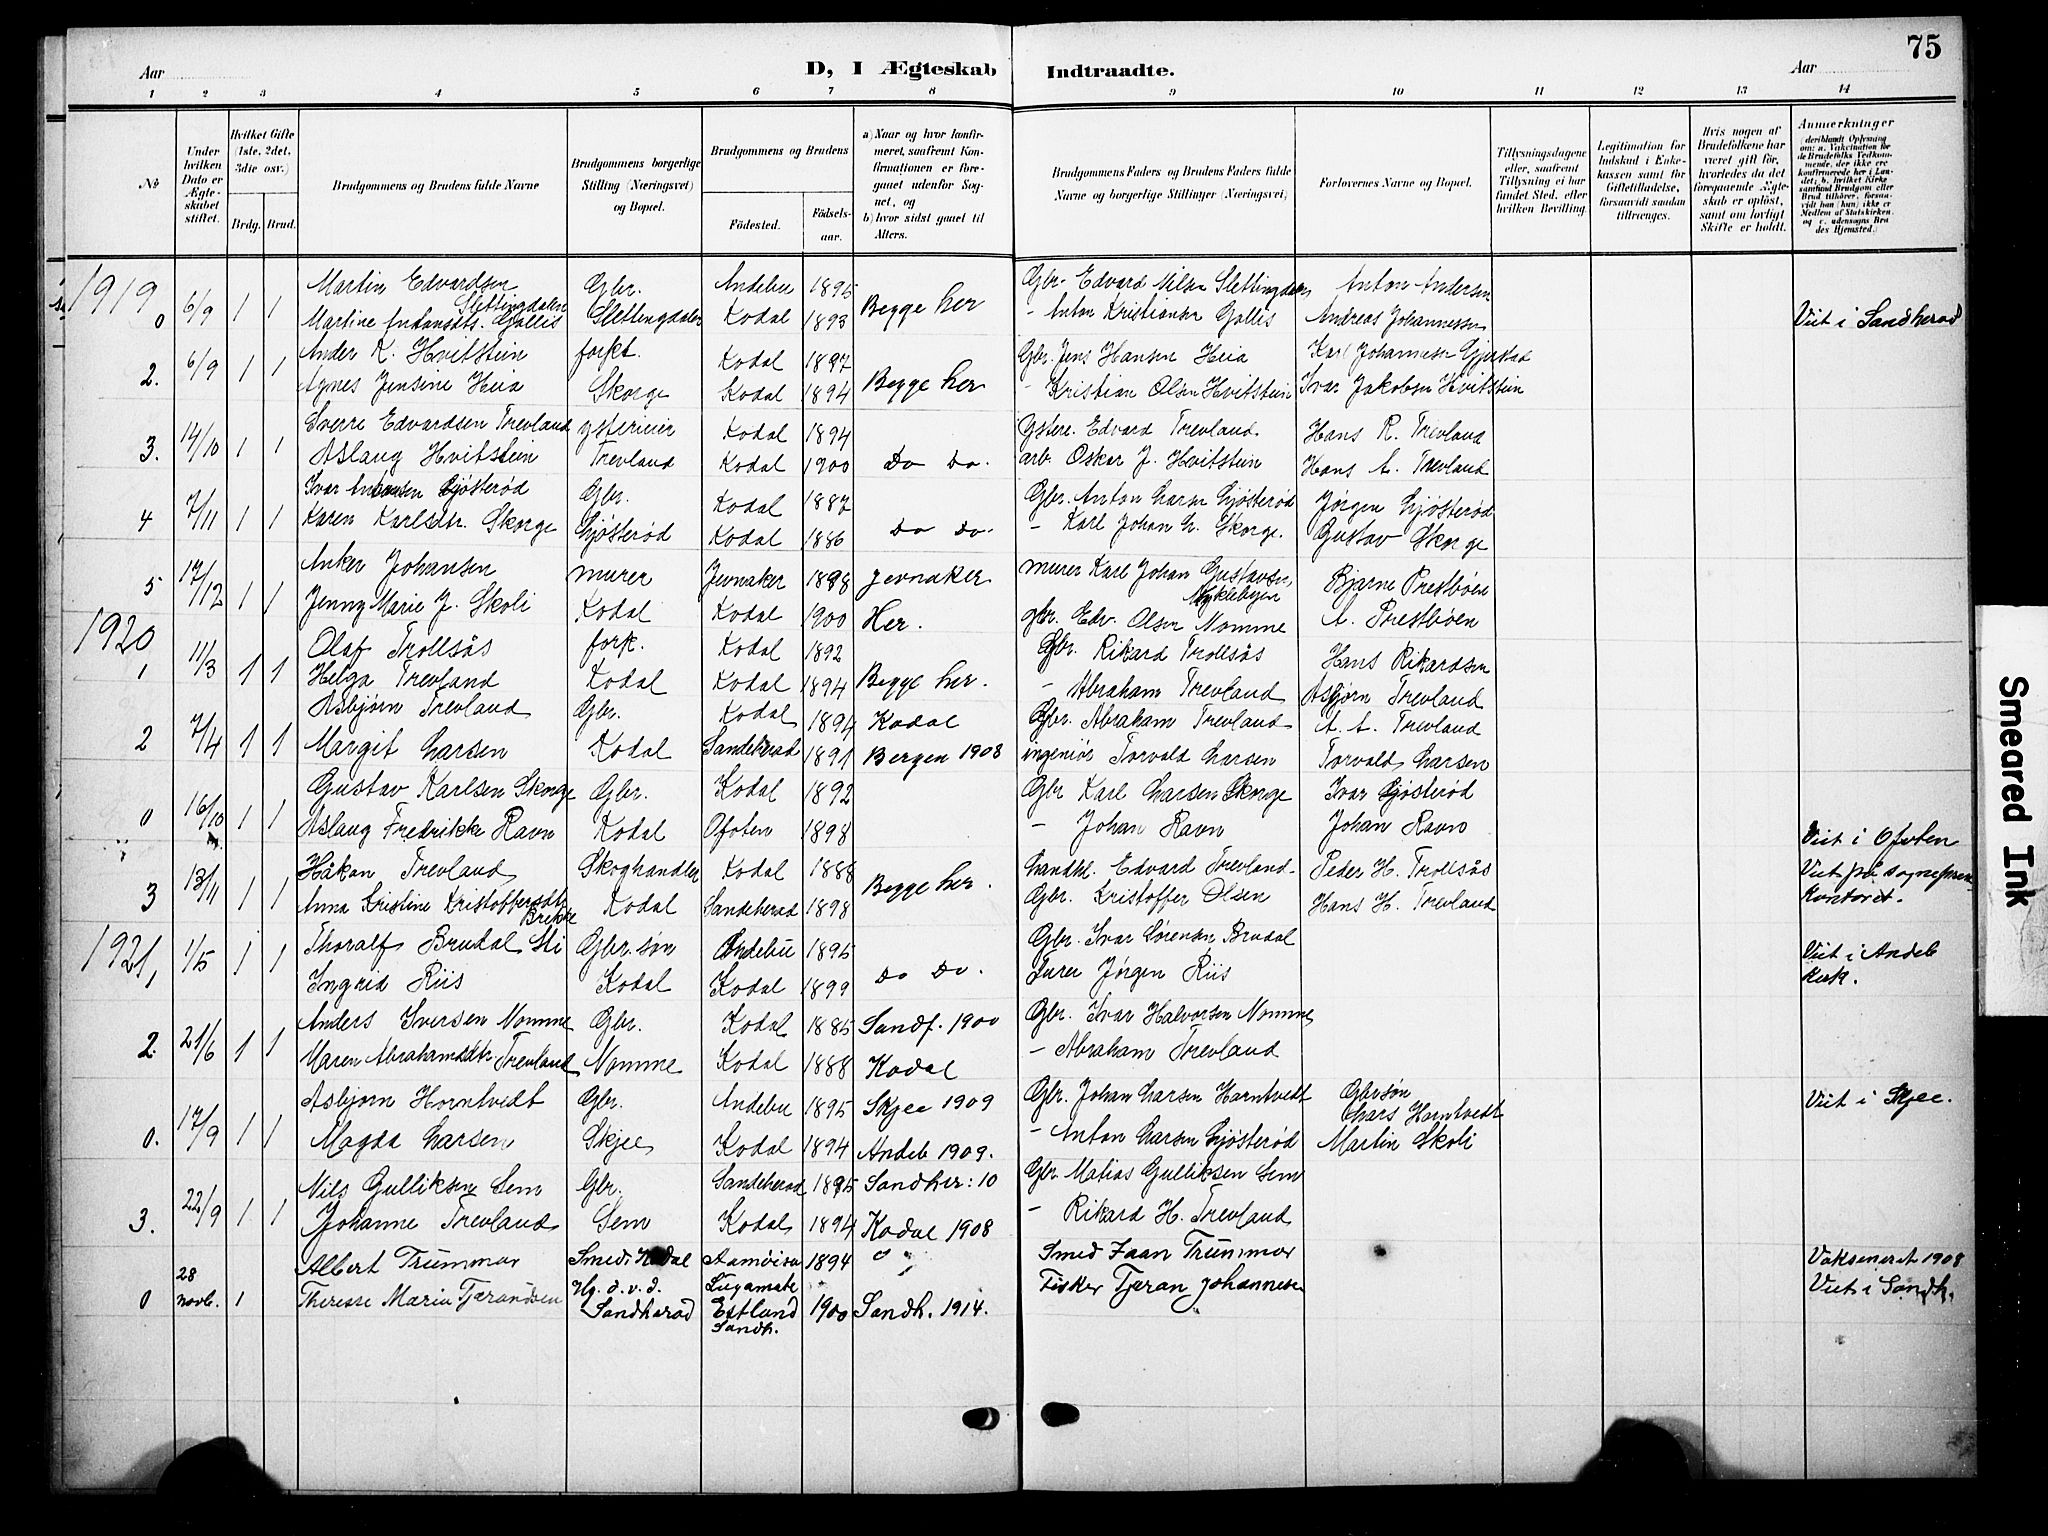 75
Aar
D, I Ægteskab Indtraadte.
Aar
1 2 3 4 5 6 7 8 9 10 11 12 13 14
No
Under hvilken Dato er Ægteskabet stiftet.
Hvilket Gifte (1ste, 2det, 3die osv.)
Brdg. Brud.
Brudgommens og Brudens fulde Navne
Brudgommens borgerlige Stilling (Næringsvei) og Bopæl.
Brudgommens og Brudens
Födested.
Födsels-aar.
a) Naar og hvor konfirmeret, saafremt Konfirmationen er foregaaet udenfor Sognet, og
b) hvor sidst gaaet til Alters.
Brudgommens Faders og Brudens Faders fulde Navne og borgerlige Stillinger (Næringsvei)
Forlovernes Navne og Bopæl.
Tillysningsdagene eller, saafremt Tillysning ei har fundet Sted, efter hvilken Bevilling.
Legitimation for Indskud i Enkekassen samt for Giftetilladelse, forsaavidt saadan tiltrenges.
Hvis nogen af Brudefolkene har været gift før, hvorledes da det foregaaende Ægteskab er opløst, samt om lovligt Skifte er holdt.
Anmærkninger
(deriblandt Oplysning om: a. Vakcination for de Brudefolks Vedkommende, der ikke ere konfirmerede her i Landet; b. hvilket Kirkesamfund Brudgom eller Brud tilhører, forsaavidt han (hun) ikke er Medlem af Statskirken, og c. udensogns Brudes Hjemsted.)
1919
0 6/9 1 1 Martin Edvardsen Slettingdalen Gbr. Andebu 1895 Begge her Gbr. Edvard Nilsen Slettingdalen Anton Andersen
Martine Gallis Slettingdalen Kodal 1893 - Anton Kristiansen Gallis Andreas Johannessen Viet i Sandherad
2. 6/9 1 1 Ander K. Hvitstein forkt. Kodal 1897 Gbr. Jens Hansen Heia Karl Johannesen Gjerstad
Agnes Jensine Heia Skorge Kodal 1894 Begge her - Kristian Olsen Hvitstein Ivar Jakobsen Hvitstein
3. 14/10 1 1 Sverre Edvardsen Trevland ysterieier Kodal 1894 Ystere. Edvard Trevland Hans R. Trevland
Aslaug Hvitstein Trevland Kodal 1900 Do Do. arb. Oskar J. Hvitstein Hans A. Trevland
4 7/11 1 1 Ivar Gjøsterød Gbr. Kodal 1887 Gbr. Anton Larsen Gjøsterød Jørgen Gjøsterød
Karen Karlsdtr. Skorge Gjøsterød Kodal 1886 Do Do. - Karl Johan L. Skorge. Gustav Skorge
5 17/12 1 1 Anker Johansen murer Jevnaker 1898 Jevnaker murer Karl Johan Gustavsen Nyklebyen Bjarne Prestbøen
Jenny Marie J. Skoli Kodal Kodal 1900 Her. gbr. Edv. Olsen Nomme A. Prestbøen
1920
1 11/3 1 1 Olaf Trollsås fork. Kodal 1892 Gbr. Rikard Trollsås Hans Rikardsen
Helga Trevland Kodal Kodal 1894 Begge her. - Abraham Trevland Asbjørn Trevland
2 7/4 1 1 Asbjørn Trevland Gbr. Kodal 1894 Kodal Gbr. Abraham Trevland A. A. Trevland
Margit Larsen Kodal Sandeherad 1891 Bergen 1908 ingeniør Torvald Larsen Torvald Larsen
0 16/10 1 1 Gustav Karlsen Skorge Gbr. Kodal 1892 Gbr Karl Larsen Skorge Ivar Gjøsterød
Aslaug Fredrikke Ravn Kodal Ofoten 1898 - Johan Ravn Johan Ravn Viet i Ofoten
3 13/11 1 1 Håkon Trevland Skoghandler Kodal 1888 Begge her. Landhl. Edvard Trevland. Peder H. Trollsås Viet på sogneprest
Anna Kristine Kristoffersdtr Brekke Kodal Sandeherad 1898 Gbr. Kristoffer Olsen Hans H. Trevland kontoret.
1921,
1/5 1 1 Thoralf Brudal Sti Gbr. søn Andebu 1895 Gbr. Ivar Sørensen Brudal Viet i Andeb
Ingrid Riis Kodal Kodal 1899 Do Do. Jørgen Riis kirk.
2. 21/6 1 1 Anders Iversen Nomme Gbr. Kodal 1885 Sandf. 1900 Gbr. Ivar Halvorsen Nomme
Maren Abrahamsdtr Trevland Nomme Kodal 1888 Kodal - Abraham Trevland
0. 17/9 1 1 Asbjørn Horntvedt Gbr. Andebu 1895 Skjee 1909 Gbr. Johan Larsen Harntvedt Gbrsøn Lars Harntvedt Viet i Skjee.
Magda Larsen Skjee Kodal 1894 Andeb 1909. - Anton Larsen Gjøsterød Martin Skoli
3. 22/9 1 1 Nils Gulliksen Sem Gbr. Sandeherad 1895 Sandher: 10 Gbr. Matias Gulliksen Sem
Johanne Trevland Sem Kodal 1894 Kodal 1908 - Rikard H. Trevland
0 28 novb. 1 Albert Trummar Smed, Kodal 1894 Smed Jaan Trummar Vaksineret 1908
Therese Marie Tjerandsen Hg. d. v. d. Sandherad Estland Sandh. 1900 Sandh. 1914. Fisker Tjeran Johannesen Viet i Sandh.
Smeared Ink